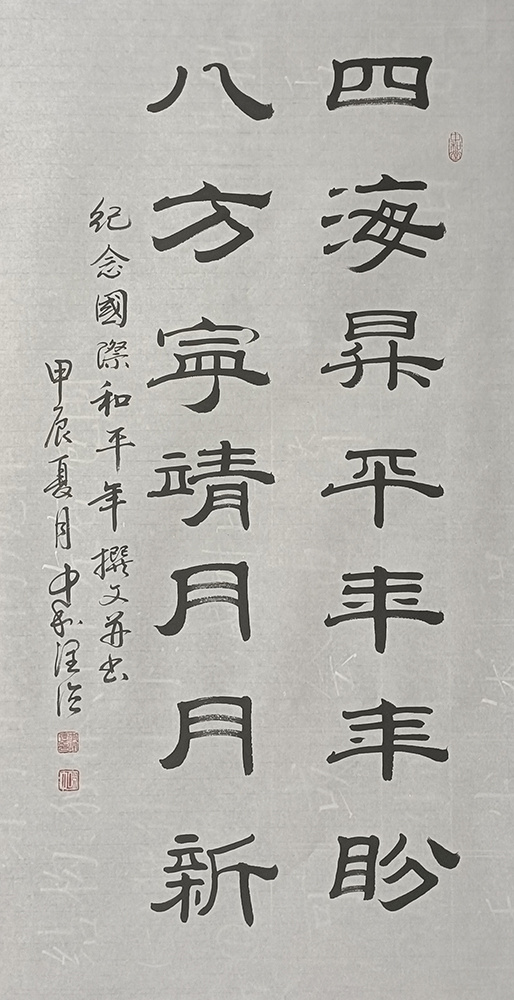 四海昇平年年盼
八方寧靖月月新
紀念國際和平年撰文并书
甲辰夏月中